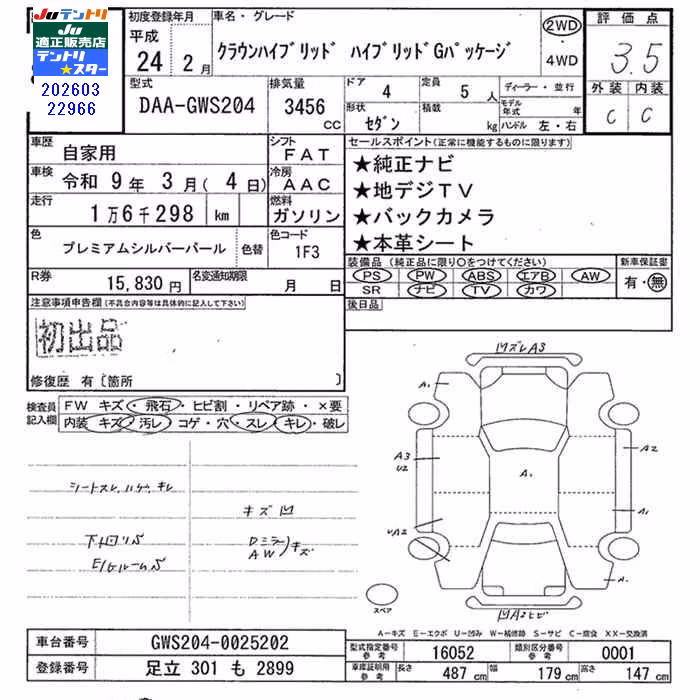 Juテントリ
Ju
適正販売店
テントリ
★スター
202603
22966
初度登録年月
平成
24 2月
車名・グレード
クラウンハイブリッド ハイブリッドGパッケージ
2WD
・
4WD
評価点
3.5
外装 内装
C C
型式
DAA-GWS204
排気量
3456
CC
ドア
4
定員
5 人
形状
セダン
積載
kg
ディーラー・並行
モデル年式 年
ハンドル 左・右
車歴
自家用
シフト
FAT
車検
令和 9年 3月( 4日)
冷房
AAC
走行
1万6千298 km
燃料
ガソリン
色
プレミアムシルバーパール
色替
色コード
1F3
R券
15,830円
名変通知期限
月 日
セールスポイント(正常に機能するものに限ります)
★純正ナビ
★地デジTV
★バックカメラ
★本革シート
装備品(純正品に限り○をつけてください)
PS PW ABS エアB AW
SR ナビ TV カワ
新車保証書
有・無
後日品
注意事項申告欄(不具合内容等は具体的に記入して下さい)
初出品
修復歴 有〔箇所 〕
検査員
記入欄
FW キズ・飛石・ヒビ割・リペア跡・×要
内装 キズ・汚レ・コゲ・穴・スレ・キレ・破レ
シートスレ,ハゲ,キレ
下回りS
E/GルームS
キズ凹
Dミラー
AW
キズ
凹ズレA3
A1
A3
U2
A2
A1
A1
UA2
A1
凹A2ヒビ
スペア
A-キズ E-エクボ U-凹み W-補修跡 S-サビ C-腐食 XX-交換済
車台番号
GWS204-0025202
登録番号
足立 301 も 2899
型式指定番号
参考
16052
類別区分番号
参考
0001
車庫証明用
参考
長さ
487 cm
幅
179 cm
高さ
147 cm